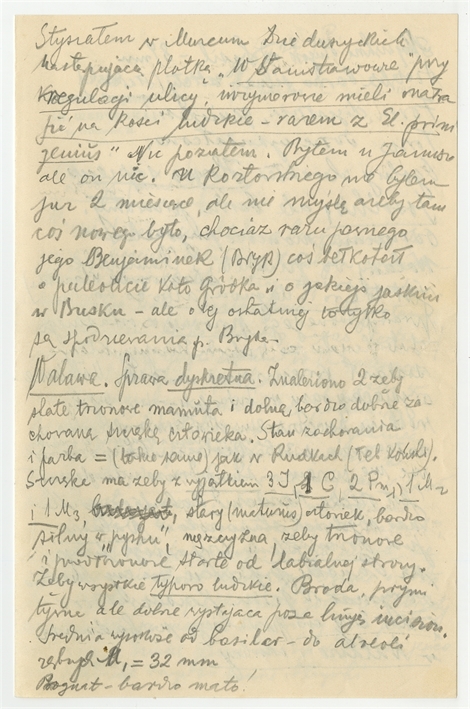 Słyszałem w Muzeum Dzieduszyckich
następującą plotkę „W Stanisławowie" przy
regulacji ulicy, inżynierowie mieli natra
fić na kości ludzkie – razem z El. primi
genius" Nic poza tem. Byłem u
ale on nic. U nie byłem
już 2 miesiące, ale nie myślę ażeby tam
coś nowego było, chociaż razu pewnego
jego Benjaminek (Bryk) coś bełkotał
o paleolicie koło Gródka „ o jakiejś jaskini
w Busku – ale o tej ostatniej to tylko
są spodziewania p. Bryka.
Walawa. Sprawa dyskretna. Znaleziono 2 zęby
stałe trzonowe mamuta i dolną, bardzo dobrze za-
chowaną szczękę człowieka. Stan zachowania
i farba = (takie same) jak w Rudkach (Tel.
Szczęka ma zęby z wyjątkiem 3 I, 1 C, 2 Pm, 1 M2
i 1 M3, stary (maturus) człowiek, bardzo
silny w „pysku", mężczyzna, zęby trzonowe
i przedtrzonowe starte od labialnej strony.
Zęby wszystkie typowo ludzkie. Broda, prymi
tywna ale dobrze wystająca poza linję incisor.
Średnia wysokość od basilar – do alveoli
zębnych M1 = 32 mm
– bardzo mało!